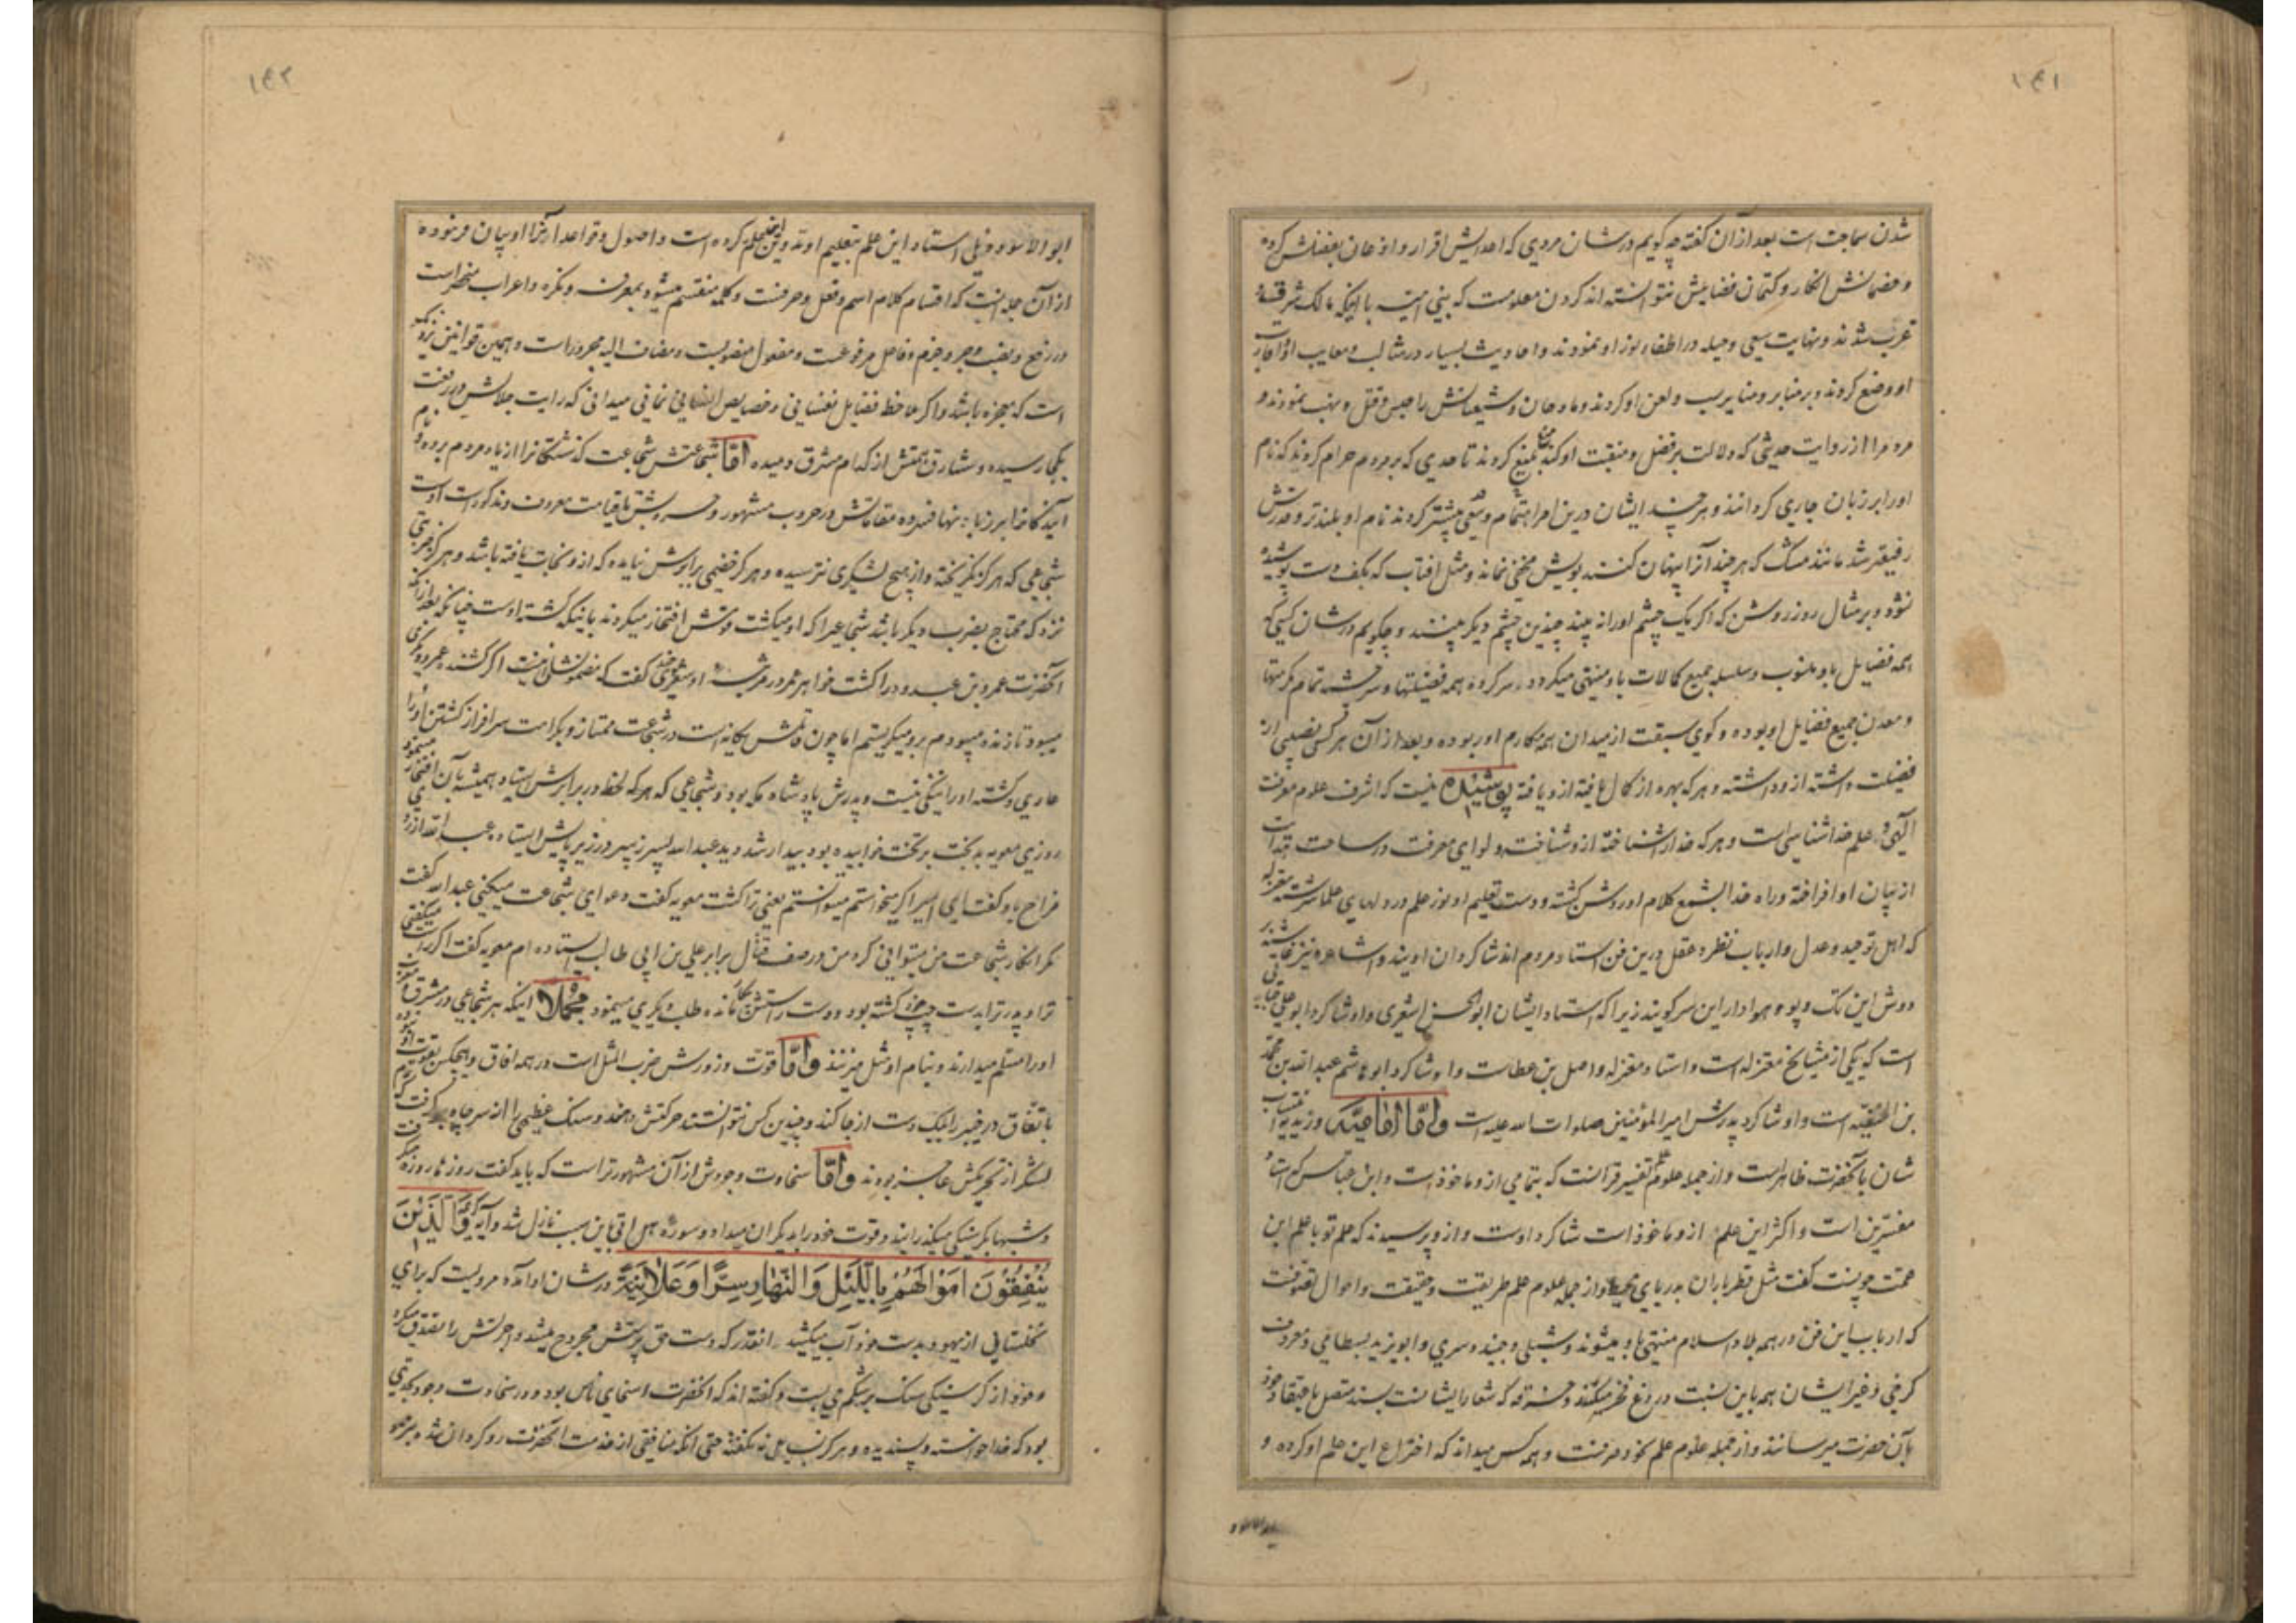 ۱۴۱
شدن سماجت است بعد از آن گفته چه گویم در شان مردی که اعدایش اقرار و اذعان بفضلش کرده
و خصمانش انکار و کتمان فضایلش نتوانسته اند کردن معلومست که بنی امیه با اینکه مالک شرق و
غرب شدند و نهایت سعی و حیله در اطفاء نور او نمودند و احادیث بسیار در مثالب و معایب او
او وضع کردند و بر منابر و منایر سب و لعن او کردند و مادحان و شیعیانش را حبس و قتل و نهب نمودند و
مردم را از روایت حدیثی که دلالت بر فضل و منقبت او کند منع کردند تا حدی که بر مردم حرام کردند که نام
او را بر زبان جاری گردانند و هر چند ایشان درین امر اهتمام و سعی بیشتر کردند نام او بلندتر و قدرش
رفیعتر شد مانند مشک که هر چند آنرا پنهان کنند بویش مخفی نماند و مثل افتاب که بکف دست پوشیده
نشود و بر مثال روز روشن که اگر یک چشم او را نه بیند چندین چشم دیگر بینند و چگویم در شان کسی که
همه فضایل باو منسوب و سلسله جمیع کمالات باو منتهی میگردد سرکرده همه فضیلتها و سرچشمه تمام مکرمتها
و معدن جمیع فضایل او بوده و گوی سبقت از میدان همه مکارم او ربوده و بعد از آن هر کس نصیبی از
فضیلت داشته ازو داشته و هر که بهره از کمال یافته ازو یافته پوشیده نیست که اشرف علوم معرفت
الهی و علم خداشناسی است و هر که خدا را شناخته ازو شناخته و لوای معرفت در ساحت هدایت
از بیان او افراخته و راه خدا بشمع کلام او روشن گشته و دست تعلیم او نور علم در دلهای علما سرشته معتزله
که اهل توحید و عدل و ارباب نظر و عقل درین فن استاد مردم اند شاگردان اویند و اشاعره نیز غاشیه
دوش این تک و پو و هوادار این سر کویند زیرا که استاد ایشان ابو الحسن اشعری و او شاگرد ابو علی جبایی
است که یکی از مشایخ معتزله است و استاد معتزله واصل بن عطاست و او شاگرد ابو هاشم عبد الله بن محمد
بن الحنفیه است و او شاگرد پدرش امیر المؤمنین صلوات الله علیه است و اما امامیه و زیدیه انتساب
شان بآنحضرت ظاهر است و از جمله علوم علم تفسیر قرآنست که بتمامی ازو ماخوذ است و ابن عباس که استاد
مفسرین است و اکثر این علم ازو ماخوذ است شاگرد اوست و ازو پرسیدند که علم تو با علم ابن
عمت چونست گفت مثل قطره باران بدریای محیط و از جمله علوم علم طریقت و حقیقت و احوال تصوفست
که ارباب این فن در همه بلاد اسلام منتهی باو میشوند و شبلی و جنید و سری و ابو یزید بسطامی و معروف
کرخی و غیر ایشان همه باین نسبت دروغ فخر میکنند و خرقه که شعار ایشانست بسند متصل باعتقاد خود
بآن حضرت میرسانند و از جمله علوم علم نحو و صرفست و همه کس میداند که اختراع این علم او کرده و
ابو الاسود
۱۴۲
ابو الاسود دئلی استاد این علم بتعلیم او تدوین این علم کرده است و اصول و قواعد آنرا او بیان فرموده
از آن جمله اینست که اقسام کلام اسم و فعل و حرفست و کلمه منقسم میشود بمعرفه و نکره و اعراب منحصر است
در رفع و نصب و جر و جزم و فاعل مرفوعست و مفعول منصوبست و مضاف الیه مجرور است و همین قوانین نزدیک
است که معجزه باشد و اگر ملاحظه فضایل نفسانی و خصایص انسانی نمائی میدانی که رایت جلالش در رفعت
بکجا رسیده و مشارق همتش از کدام مشرق دمیده اما شجاعتش شجاعت گذشتگانرا از یاد مردم برده و نام
آیندگانرا بر زبانها فسرده مقاماتش در حروب مشهور و حروبش تا قیامت معروف و مذکور است اوست
شجاعی که هرگز نگریخته و از هیچ لشکری نترسیده و هرگز خصمی برابرش نیامده که ازو نجات یافته باشد و هرگز ضربتی
نزد که محتاج بضرب دیگر باشد شجاعیرا که او میکشت قومش افتخار میکردند باینکه کشته اوست چنانکه بعد از آنکه
آنحضرت عمرو بن عبدود را کشت خواهر عمرو در مرثیه او شعری چند گفت که مضمونش اینست اگر کشنده عمرو دیگری
میبود تا زنده میبودم برو میگریستم اما چون قاتلش یگانه است در شجاعت ممتاز و بکرامت سرافراز کشتن او را
عاری و کشته او را ننگی نیست و پدرش پادشاه مکه بود و شجاعی که هر که لحظه در برابرش ایستاد همیشه بآن افتخار مینمود
روزی معویه بدبخت بر تخت خوابیده بود بیدار شد دید عبد الله پسر زبیر در زیر پایش ایستاده عبد الله از روی
مزاح باو گفت ای امیر اگر میخواستم میتوانستم یعنی ترا کشت معویه گفت دعوای شجاعت میکنی عبد الله گفت
مگر انکار شجاعت من میتوانی کرد من در صف قتال برابر علی بن ابی طالب ایستاده ام معویه گفت اگر راست میگفتی
ترا و پدر ترا بدست چپ کشته بود و دست راستش بیکار مانده طلب دیگری مینمود مجملا اینکه هر شجاعی در مشرق و مغرب
او را مسلم میدارند و بنام او مثل میزنند و اما قوت و زورش ضرب المثل است در همه افاق و هیچکس بقوت او نبوده
باتفاق در خیبر را بیک دست از جا کند و چندین کس نتوانستند حرکتش دهند و سنک عظیمی را از سر چاه برگرفت که
لشکر از تحریکش عاجز بودند و اما سخاوت وجودش از آن مشهورتر است که باید گفت روزها روزه میگرفت
و شبها بگرسنگی میگذرانید و قوت خود را بدیگران میداد و سوره هل اتی باین سبب نازل شد و آیه کریمه وَالَّذِینَ
یُنْفِقُونَ اَمْوَالَهُمْ بِاللَّیْلِ وَالنَّهَارِ سِرًّا وَعَلَانِیَةً در شان او آمده مرویست که برای
نخلستانی از یهود بدست خود آب میکشید انقدر که دست حق پرستش مجروح میشد و اجرتش را تصدق میکرد
و خود از گرسنگی سنک بر شکم می بست و گفته اند که آنحضرت اسخای ناس بود و در سخاوت وجود بحدی
بود که خدا خواسته و پسندیده و هرگز بسایل نه نگفته حتی آنکه منافقی از خدمت آنحضرت روگردان شده